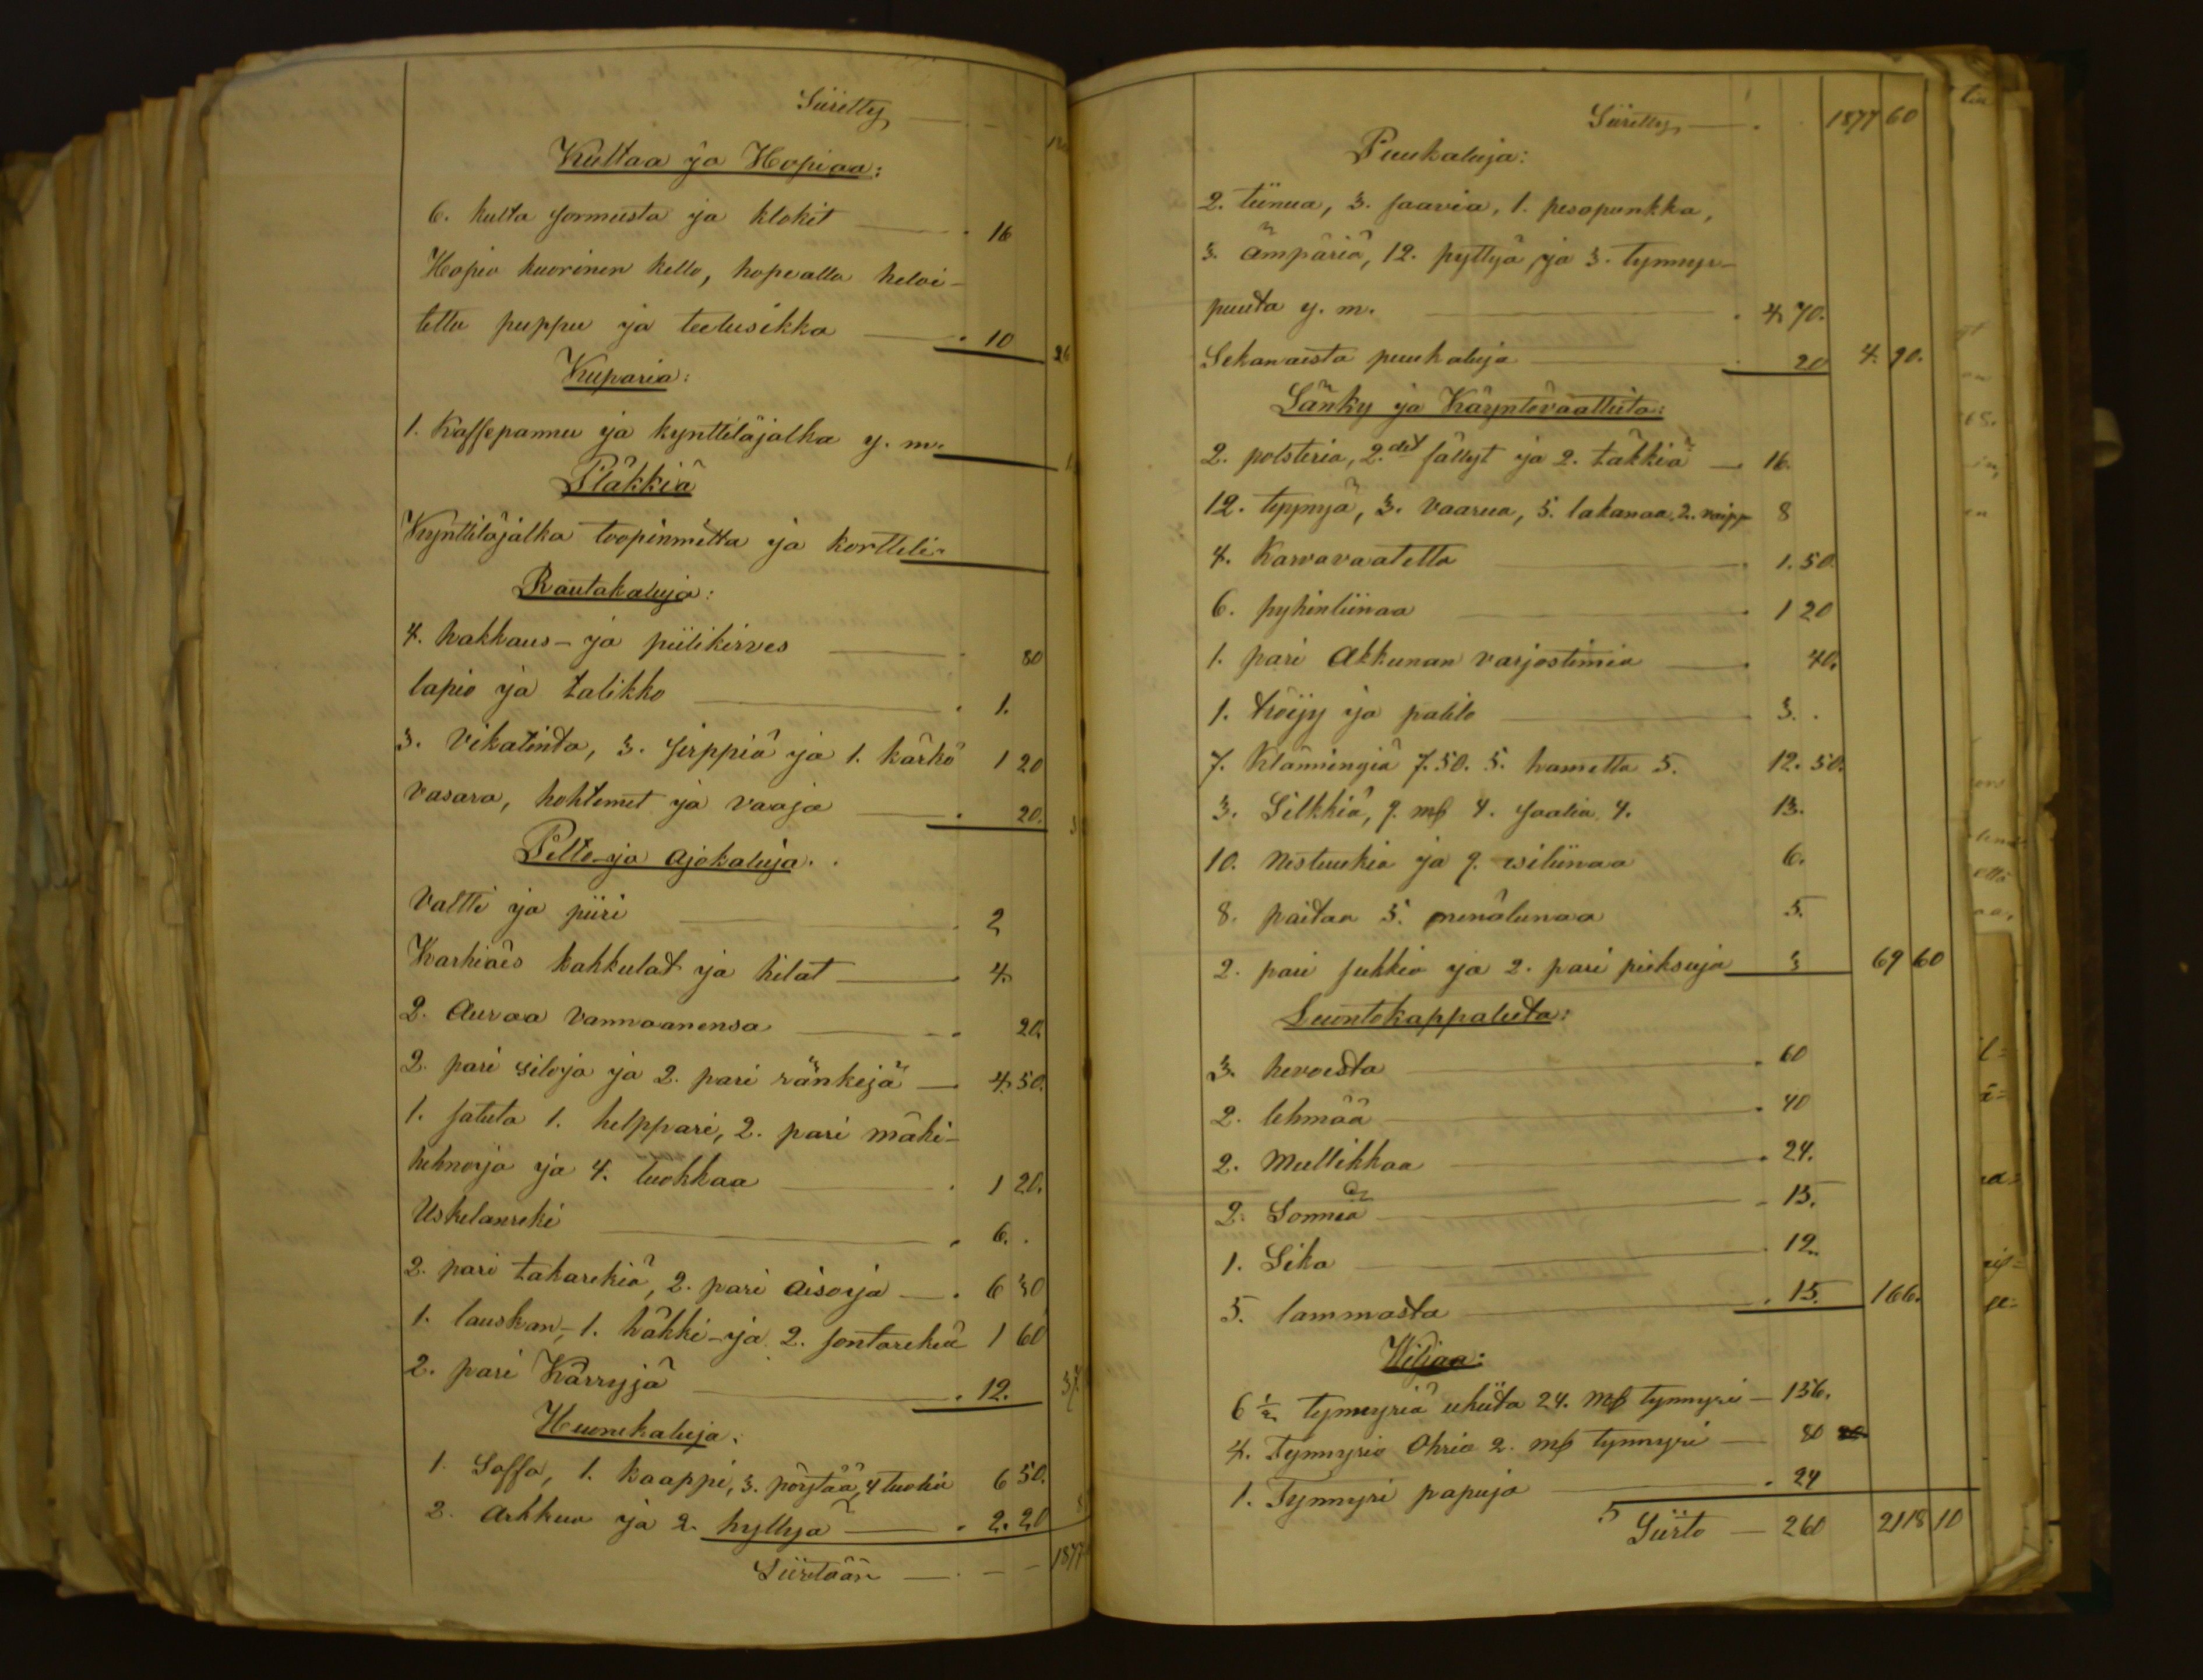 Siiretty
Kultaa ja Hopiaa:
6. kulta sormusta ja klokit 16
Hopia kuorinen kello, hopealla heloi-
tettu puppu ja teelusikka 10 26
Kuparia:
1. Kaffepannu ja kynttiläjalka y. m.
Pläkkiä
Kynttiläjalka toopinmitta ja kortteli
Rautakaluja:
4. hakkaus- ja piilikirves 80
lapio ja talikko 1.
3. Vikatinta, 3. sirppiä ja 1. kärhö 1 20
vasara, hohtemet ja vaaja 20.
Pelto-ja Ajokaluja.
Valtti ja piiri 2
Karhiais kahkulat ja hilat 4.
2. Auraa Vannaanensa 20.
2. pari siloja ja 2. pari ränkejä 4. 50.
1. satula 1. helppari, 2. pari mäki-
hihnoja ja 4. luokkaa 1 20.
Uskelanreki 6.
2. pari takarekiä, 2. pari Aisoja 6 30
1. lauskan-, 1. häkki-ja 2. sontarekeä 1 60
2. pari Kärryjä 12. 37
Huonekaluja:
1. Soffa, 1. kaappi, 3. pöytää, 4 tuolia 6 50.
2. Arkkua ja 2. hyllyä 2. 20
Siiretään 1877
Siiretty 1877 60
Puukaluja:
2. tiinua, 3. saavia, 1. pesopunkka,
3. ämpäriä, 12. pyttyä ja 3. tynnyr-
puuta y. m. 4. 70.
Sekanaista puukaluja 20 4. 90.
Sänky ja Käyntövaatteita:
2. polsteria, 2. det fällyt ja 2. täkkiä 16.
12. tyynyä, 3. vaarua, 5. lakanaa, 2. vaipp 8
4. Karvavaatetta 1. 50.
6. pyhinliinaa 1 20
1. pari Akkunan varjostimia 40.
1. tröijy ja paltto 3.
7. Klänningiä 7. 50. 5. hametta 5. 12. 50.
3. Silkkiä, 9. mk 4. saalia 4. 13.
10. nestuukia ja 9. esiliinaa 6.
8. paitaa 5. nenäliinaa 5.
2. pari sukkia ja 2. pari pieksuja 3 69 60
Luontokappaleita:
3. hevoista 60
2. lehmää 40
2. Mullikkaa 24.
2. Sonnia 15.
1. Sika 12.
5. lammasta 15. 166.
Wiljaa:
6 ½ tynnyriä ruhista 24. mk tynnyri 156.
4. Tynnyriä Ohria 2. mk tynnyri 80
1. Tynnyri papuja 24
Siirto 260 2118 10